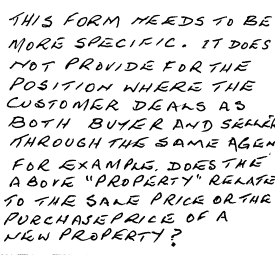 THIS FORM NEEDS TO BE
MORE SPECIFIC. IT DOES
NOT PROVIDE FOR THE
POSITION WHERE THE
CUSTOMER DEALS AS
BOTH BUYER AND SELLER
THROUGH THE SAME AGEN
FOR EXAMPLE. DOES THE
ABOVE "PROPERTY" RELATE
TO THE SALE PRICE OR THE
PURCHASE PRICE OF A
NEW PROPERTY?